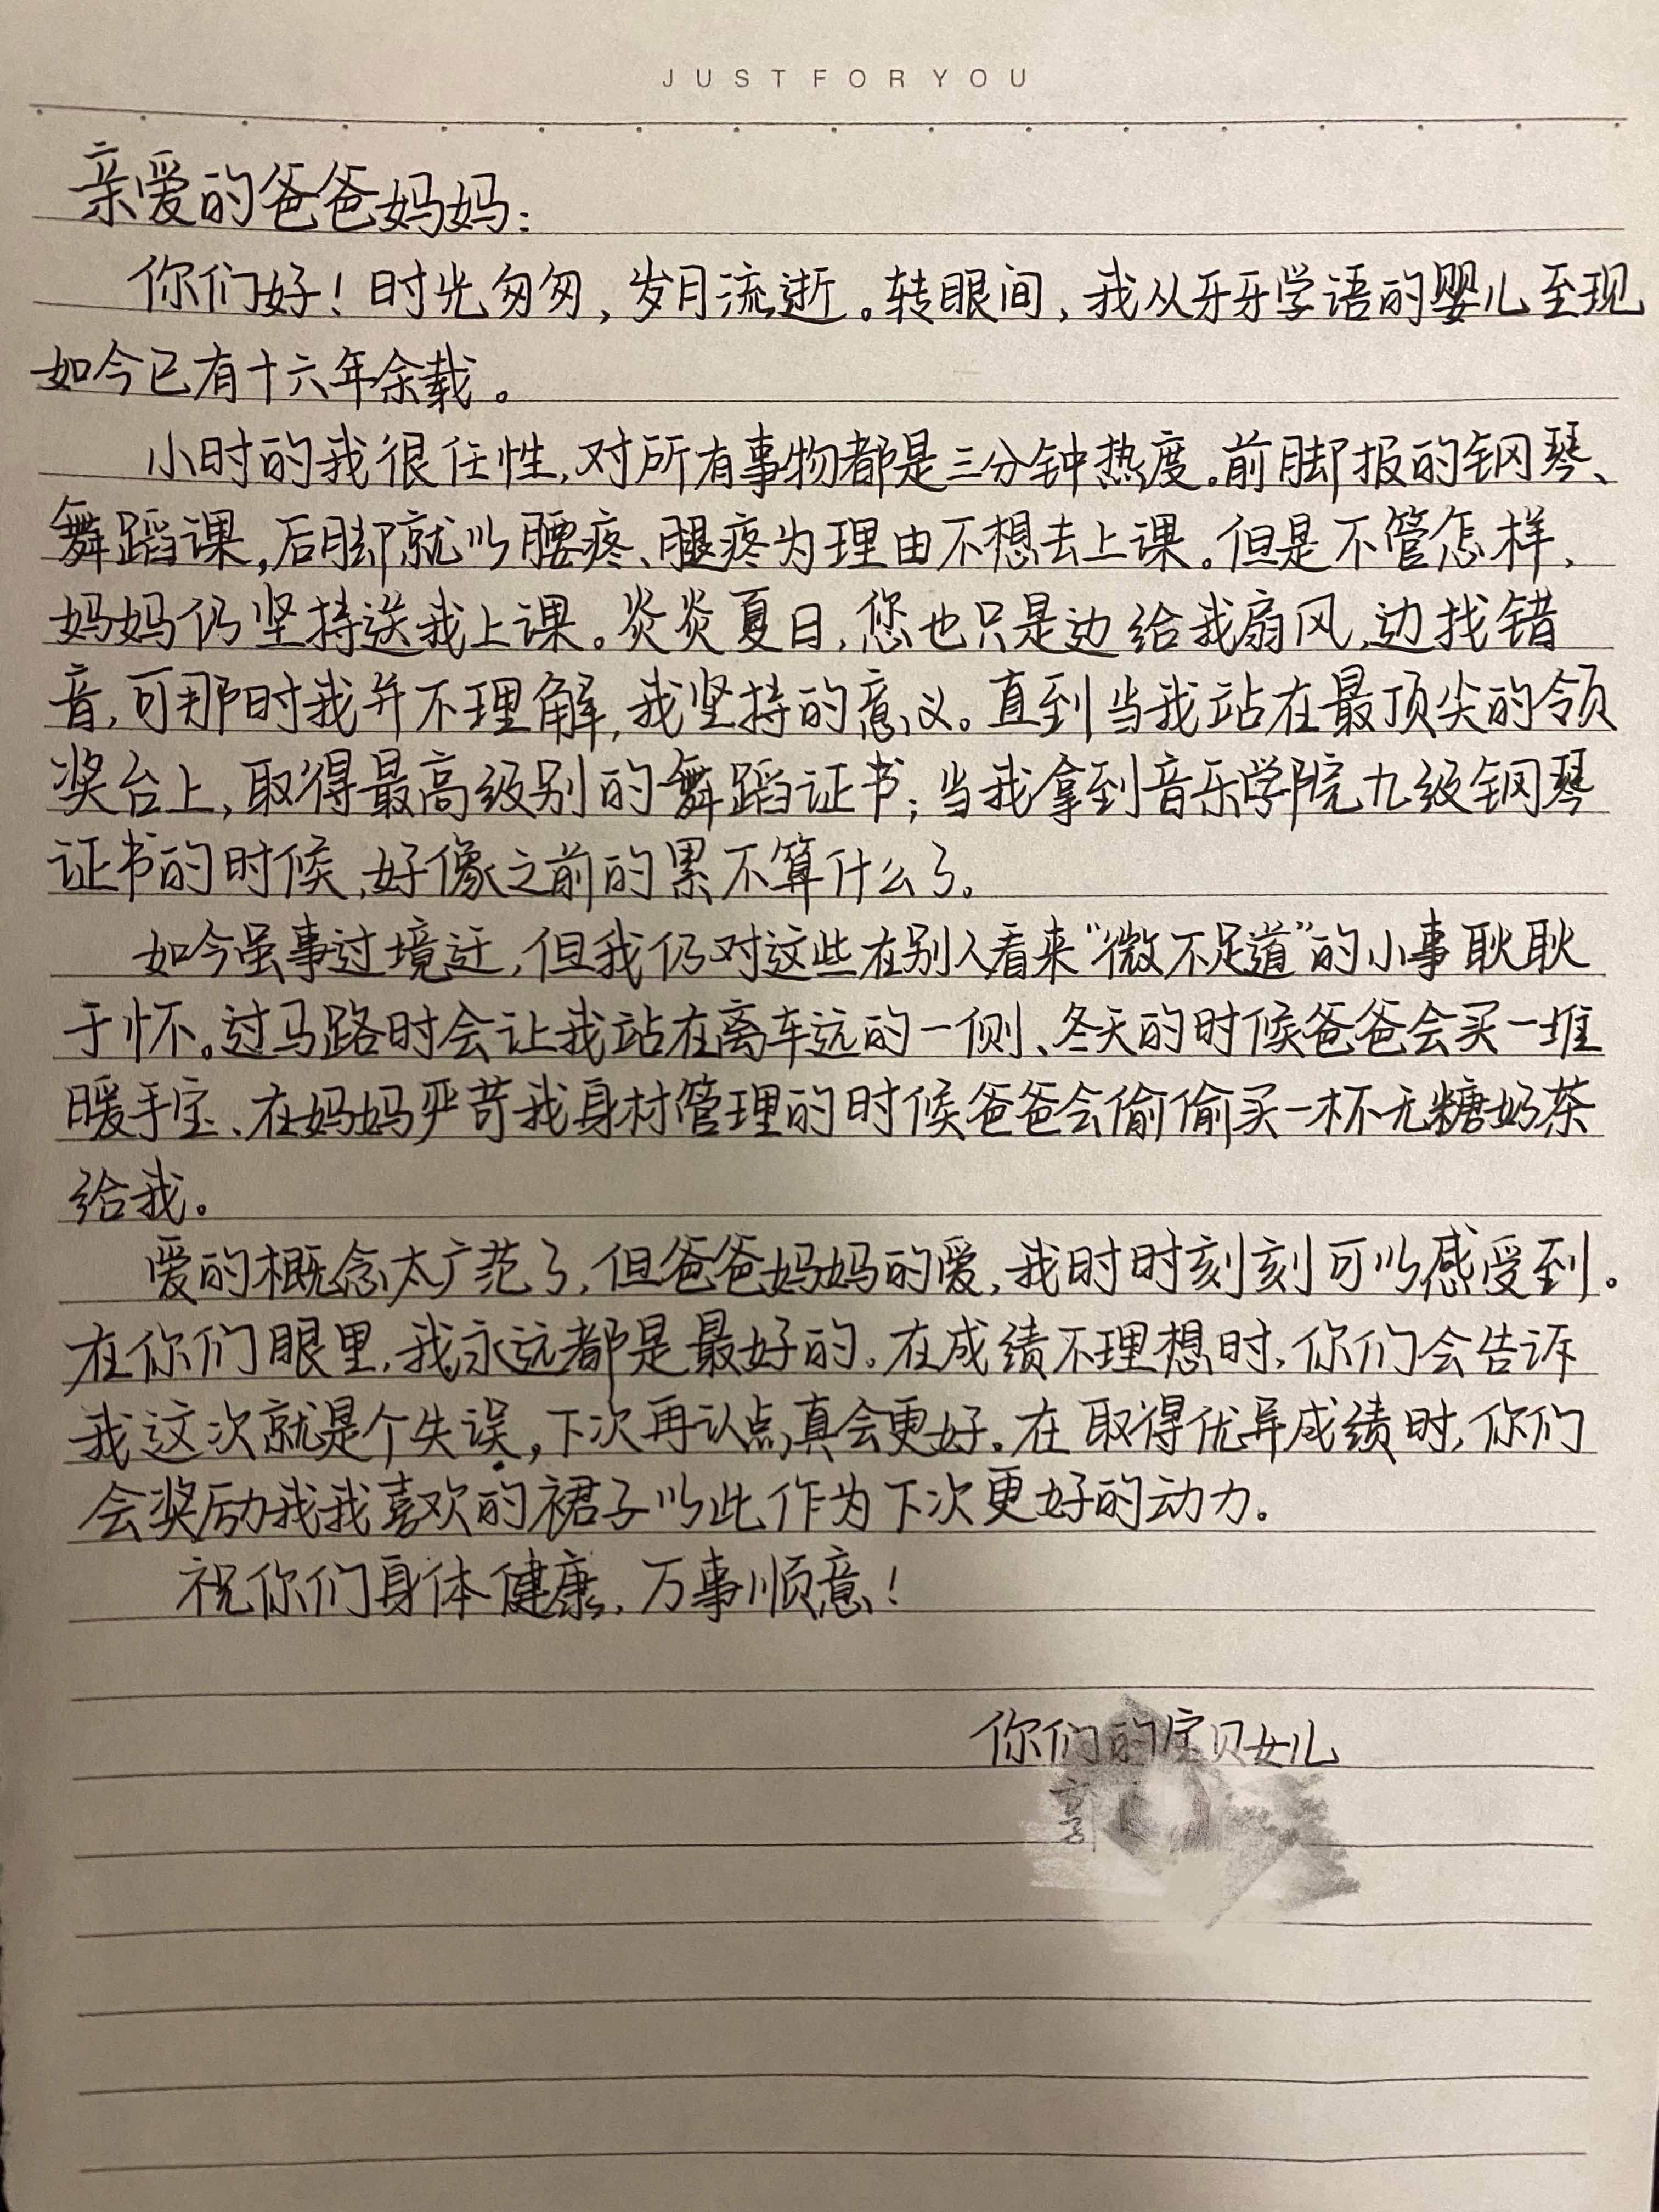 JUST FOR YOU
亲爱的爸爸妈妈:
你们好！时光匆匆，岁月流逝。转眼间，我从牙牙学语的婴儿至现
如今已有十六年余载。
小时的我很任性，对所有事物都是三分钟热度。前脚报的钢琴、
舞蹈课，后脚就以腰疼、腿疼为理由不想去上课。但是不管怎样，
妈妈仍坚持送我上课。炎炎夏日，您也只是边给我扇风，边找错
音，可那时我并不理解，我坚持的意义。直到当我站在最顶尖的领
奖台上，取得最高级别的舞蹈证书；当我拿到音乐学院九级钢琴
证书的时候，好像之前的累不算什么了。
如今虽事过境迁，但我仍对这些在别人看来“微不足道”的小事耿耿
于怀。过马路时会让我站在离车远的一侧、冬天的时候爸爸会买一堆
暖手宝、在妈妈严苛我身材管理的时候爸爸会偷偷买一杯无糖奶茶
给我。
爱的概念太广范了，但爸爸妈妈的爱，我时时刻刻可以感受到。
在你们眼里，我永远都是最好的。在成绩不理想时，你们会告诉
我这次就是个失误，下次再认点真会更好。在取得优异成绩时，你们
会奖励我我喜欢的裙子以此作为下次更好的动力。
祝你们身体健康，万事顺意！
你们的宝贝女儿
郭